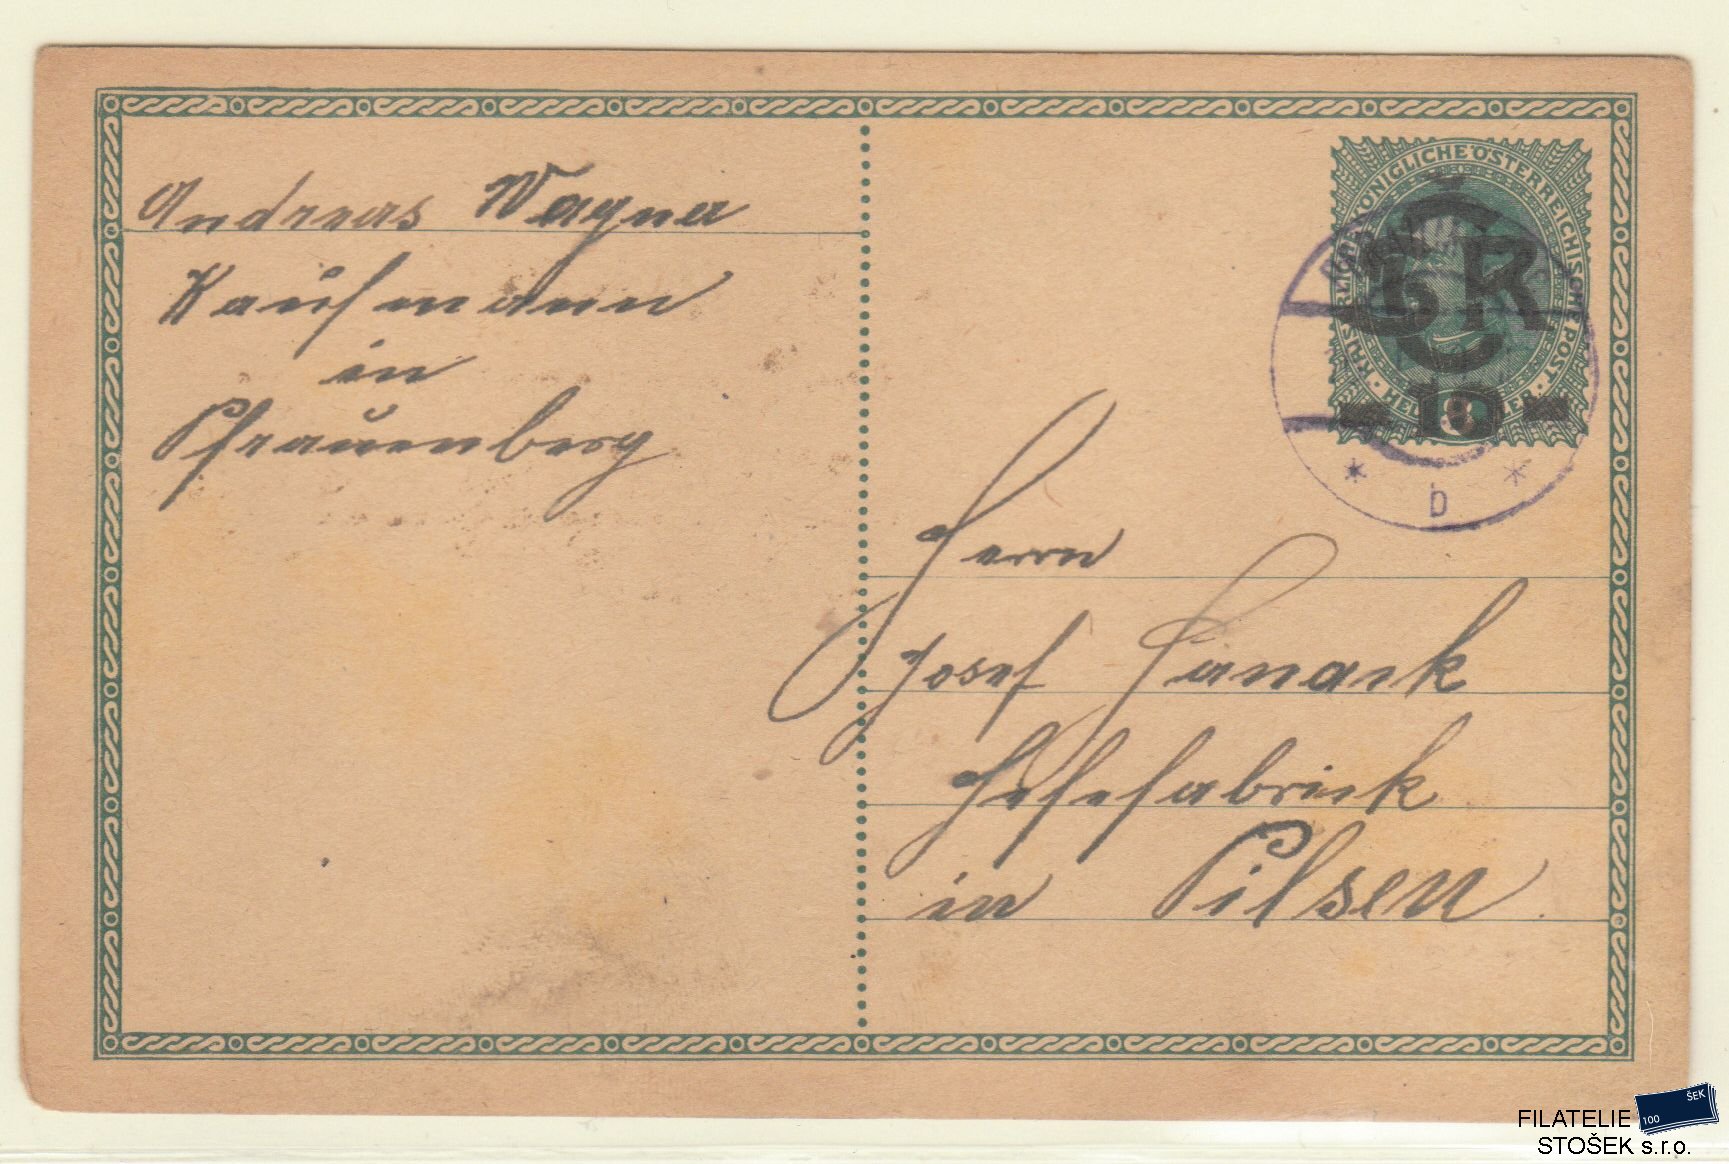 Andreas Wagner
Kaufmann
in
Pfrauenberg
KAISERLICHE KÖNIGLICHE ÖSTERREICHISCHE POST
ČSR
10
b
Herrn
Josef
Hefefabrick
in Pilsen
FILATELIE
STOŠEK s.r.o.
100 ŠEK